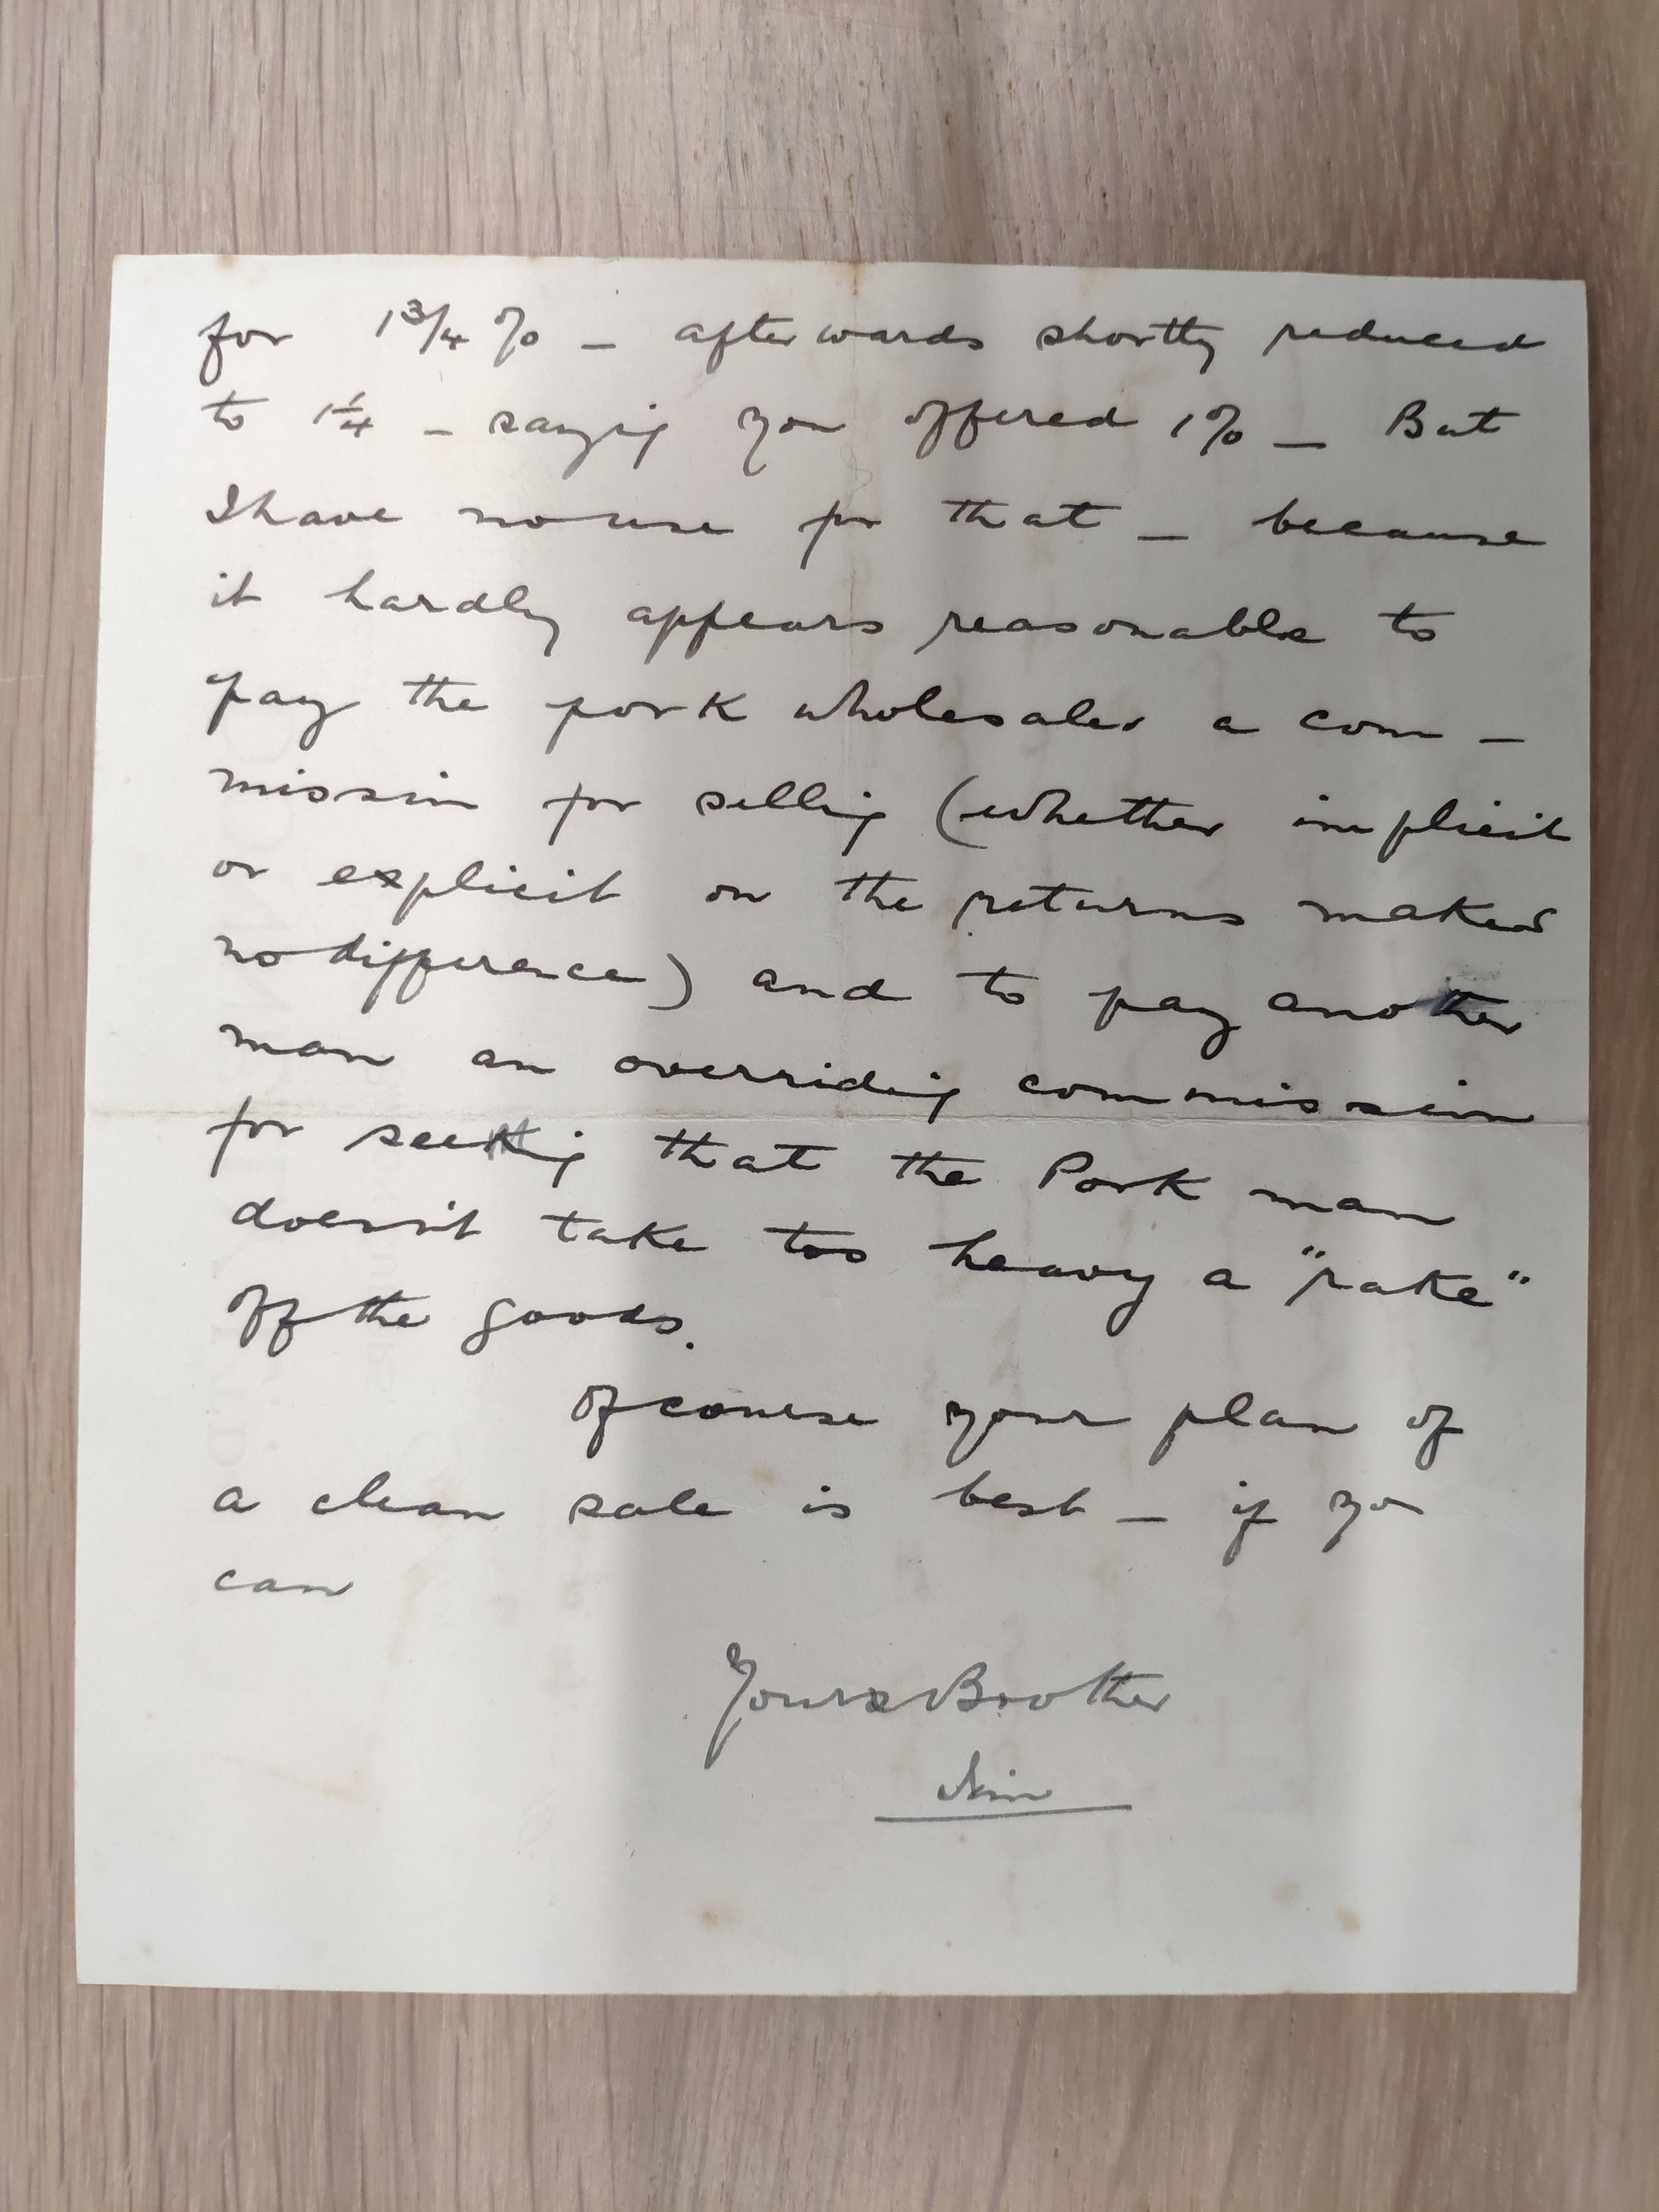 for 1¾% – afterwards shortly reduced
to 1¼ – saying you offered 1% – But
I have no use for that – because
it hardly appears reasonable to
pay the pork wholesaler a com –
mission for selling (whether implicit
or explicit on the returns makes
no difference) and to pay another
man an overriding commission
for seeing that the Pork man
doesn't take too heavy a "rake"
off the goods.
Of course your plan of
a clean sale is best – if you
can
Yours Brother